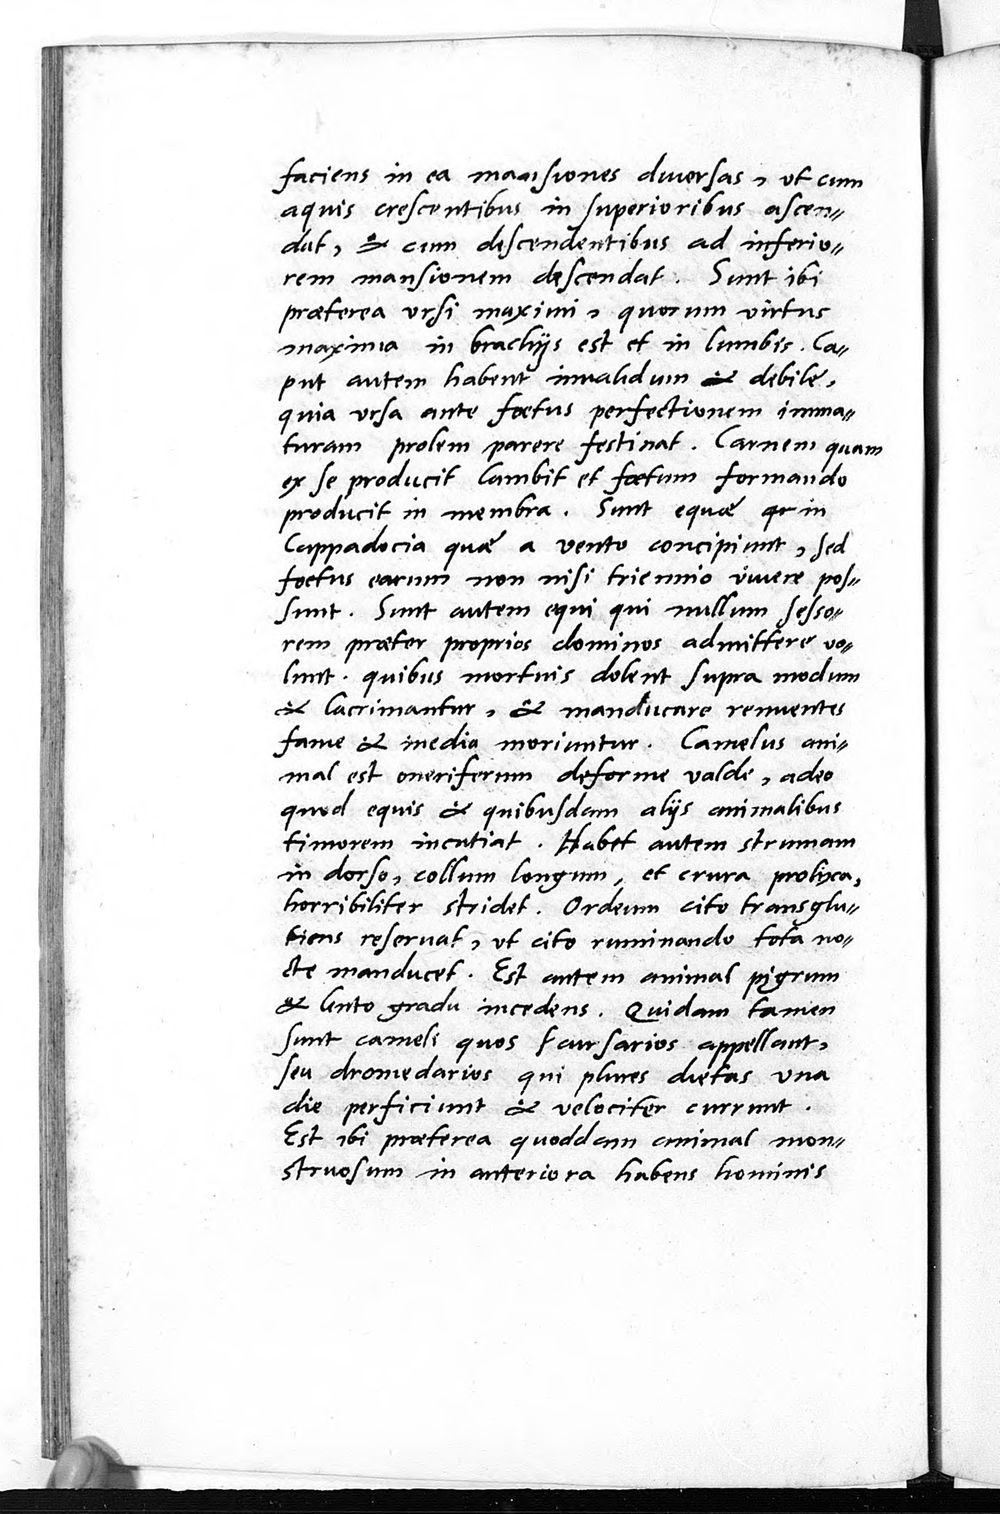 faciens in ea mansiones diuersas, vt cum
aquis crescentibus in superioribus ascen„
dat, & cum descendentibus ad inferio„
rem mansionem descendat. Sunt ibi
præterea vrsi maximi, quorum virtus
maxima in brachijs est et in lumbis. Ca„
put autem habent inualidum & debile,
quia vrsa ante fœtus perfectionem imma„
turam prolem parere festinat. Carnem quam
ex se producit lambit et fœtum formando
producit in membra. Sunt equæ in
Cappadocia quæ a vento concipiunt, sed
foetus earum non nisi triennio viuere pos„
sunt. Sunt autem equi qui nullum sesso„
rem præter proprios dominos admittere vo„
lunt. quibus mortuis dolent supra modum
& lacrimantur, & manducare renuentes
fame & inedia moriuntur. Camelus ani„
mal est oneriferum deforme valde, adeo
quod equis & quibusdam alijs animalibus
timorem incutiat. Habet autem strumam
in dorso, collum longum, et crura prolixa,
horribiliter stridet. Ordeum cito transglu„
tiens reseruat, vt cito ruminando tota no„
cte manducet. Est autem animal pigrum
& lento gradu incedens. Quidam tamen
sunt cameli quos cursarios appellant,
seu dromedarios qui plures dietas vna
die perficiunt & velociter currunt.
Est ibi præterea quoddam animal mon„
struosum in anteriora habens hominis